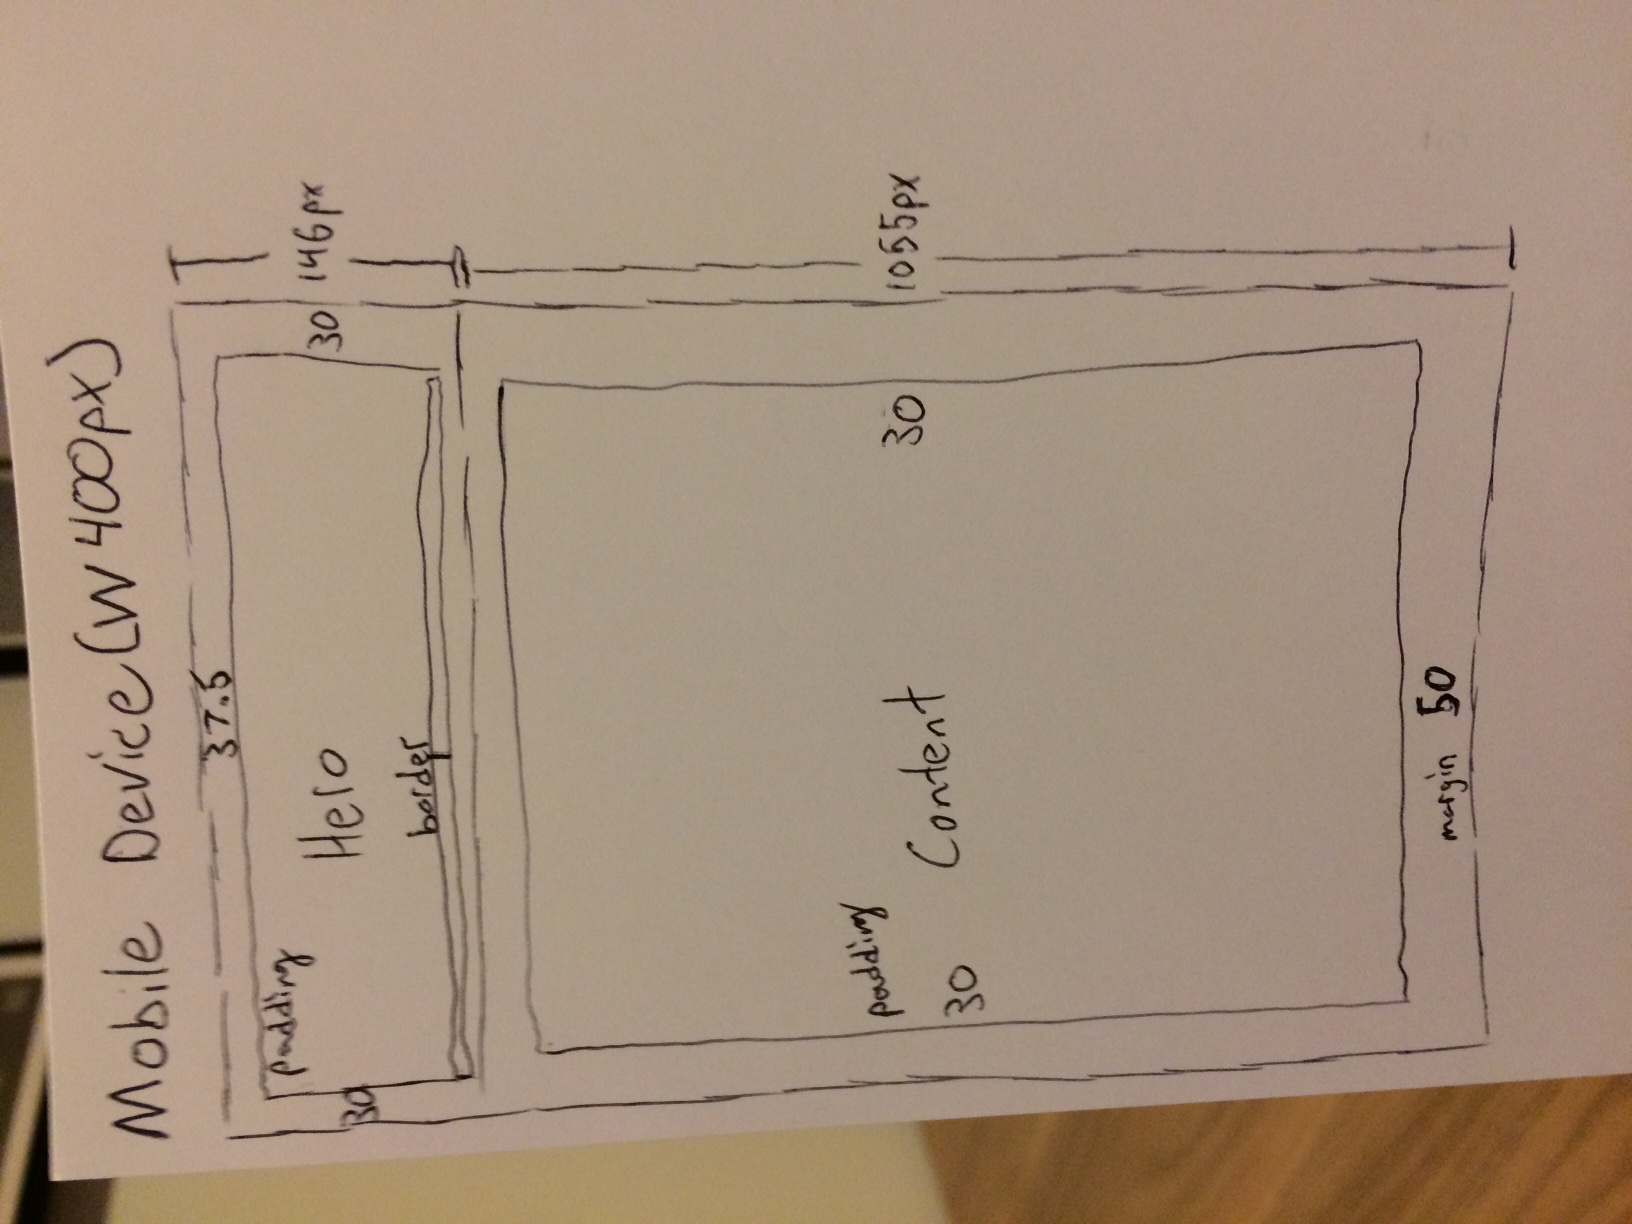 Mobile Device (W 400px)
37.5
padding
Hero
30
30
146px
border
padding
30
Content
30
1055px
margin 50